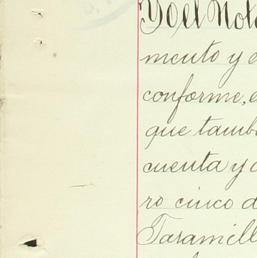 Yo el Nota
mento y e
conforme, e
que tamb
cuenta y o
ro cinco d
Jaramill